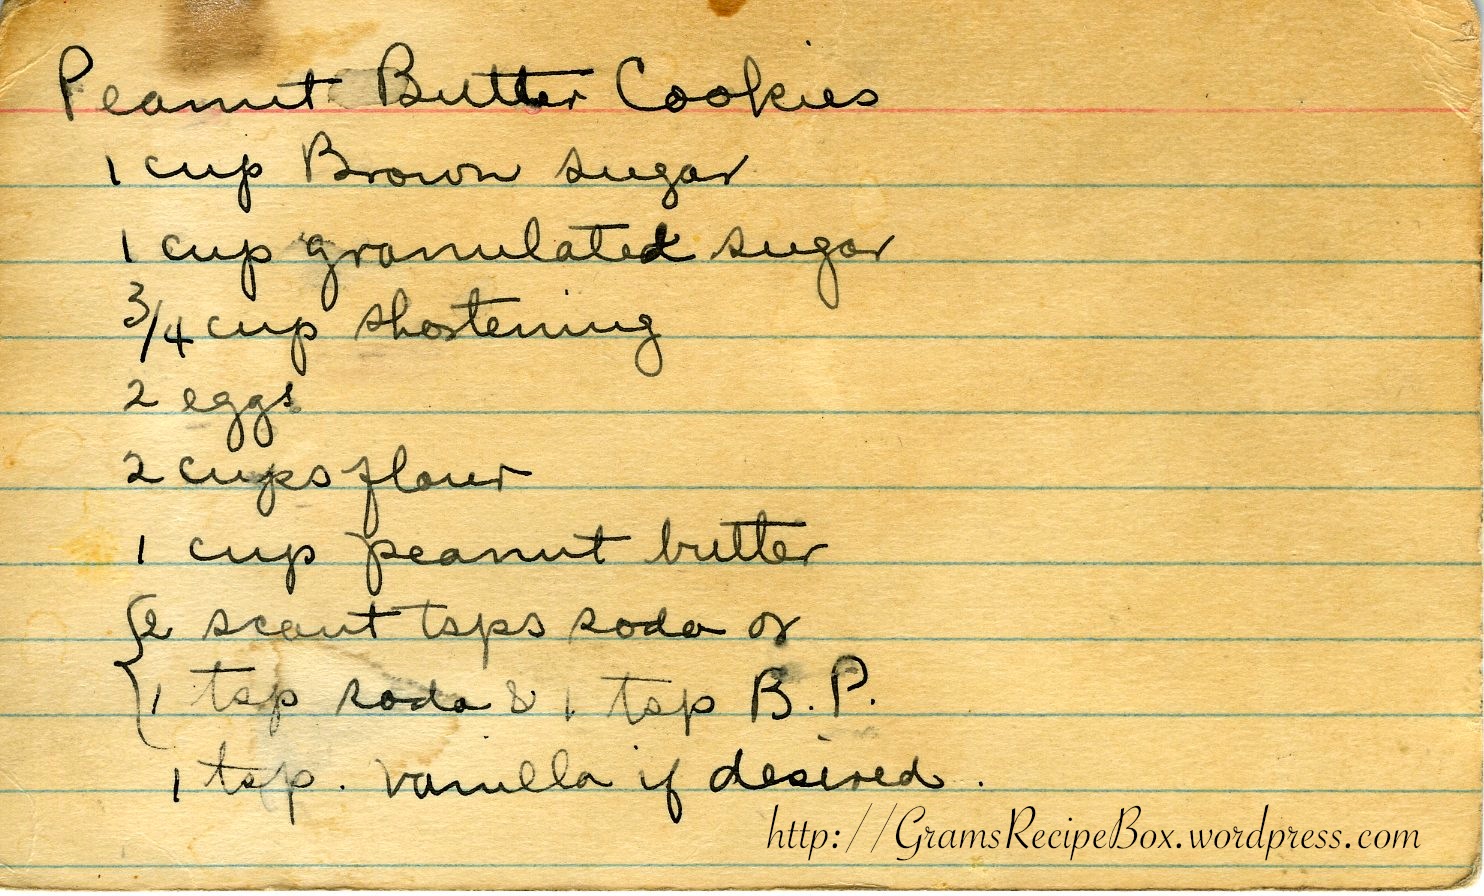 Peanut Butter Cookies
1 cup Brown sugar
1 cup granulated sugar
3/4 cup shortening
2 eggs
2 cups flour
1 cup peanut butter
2 scant tsps soda or
1 tsp soda & 1 tsp B.P.
1 tsp. vanilla if desired.
http://GramsRecipeBox.wordpress.com